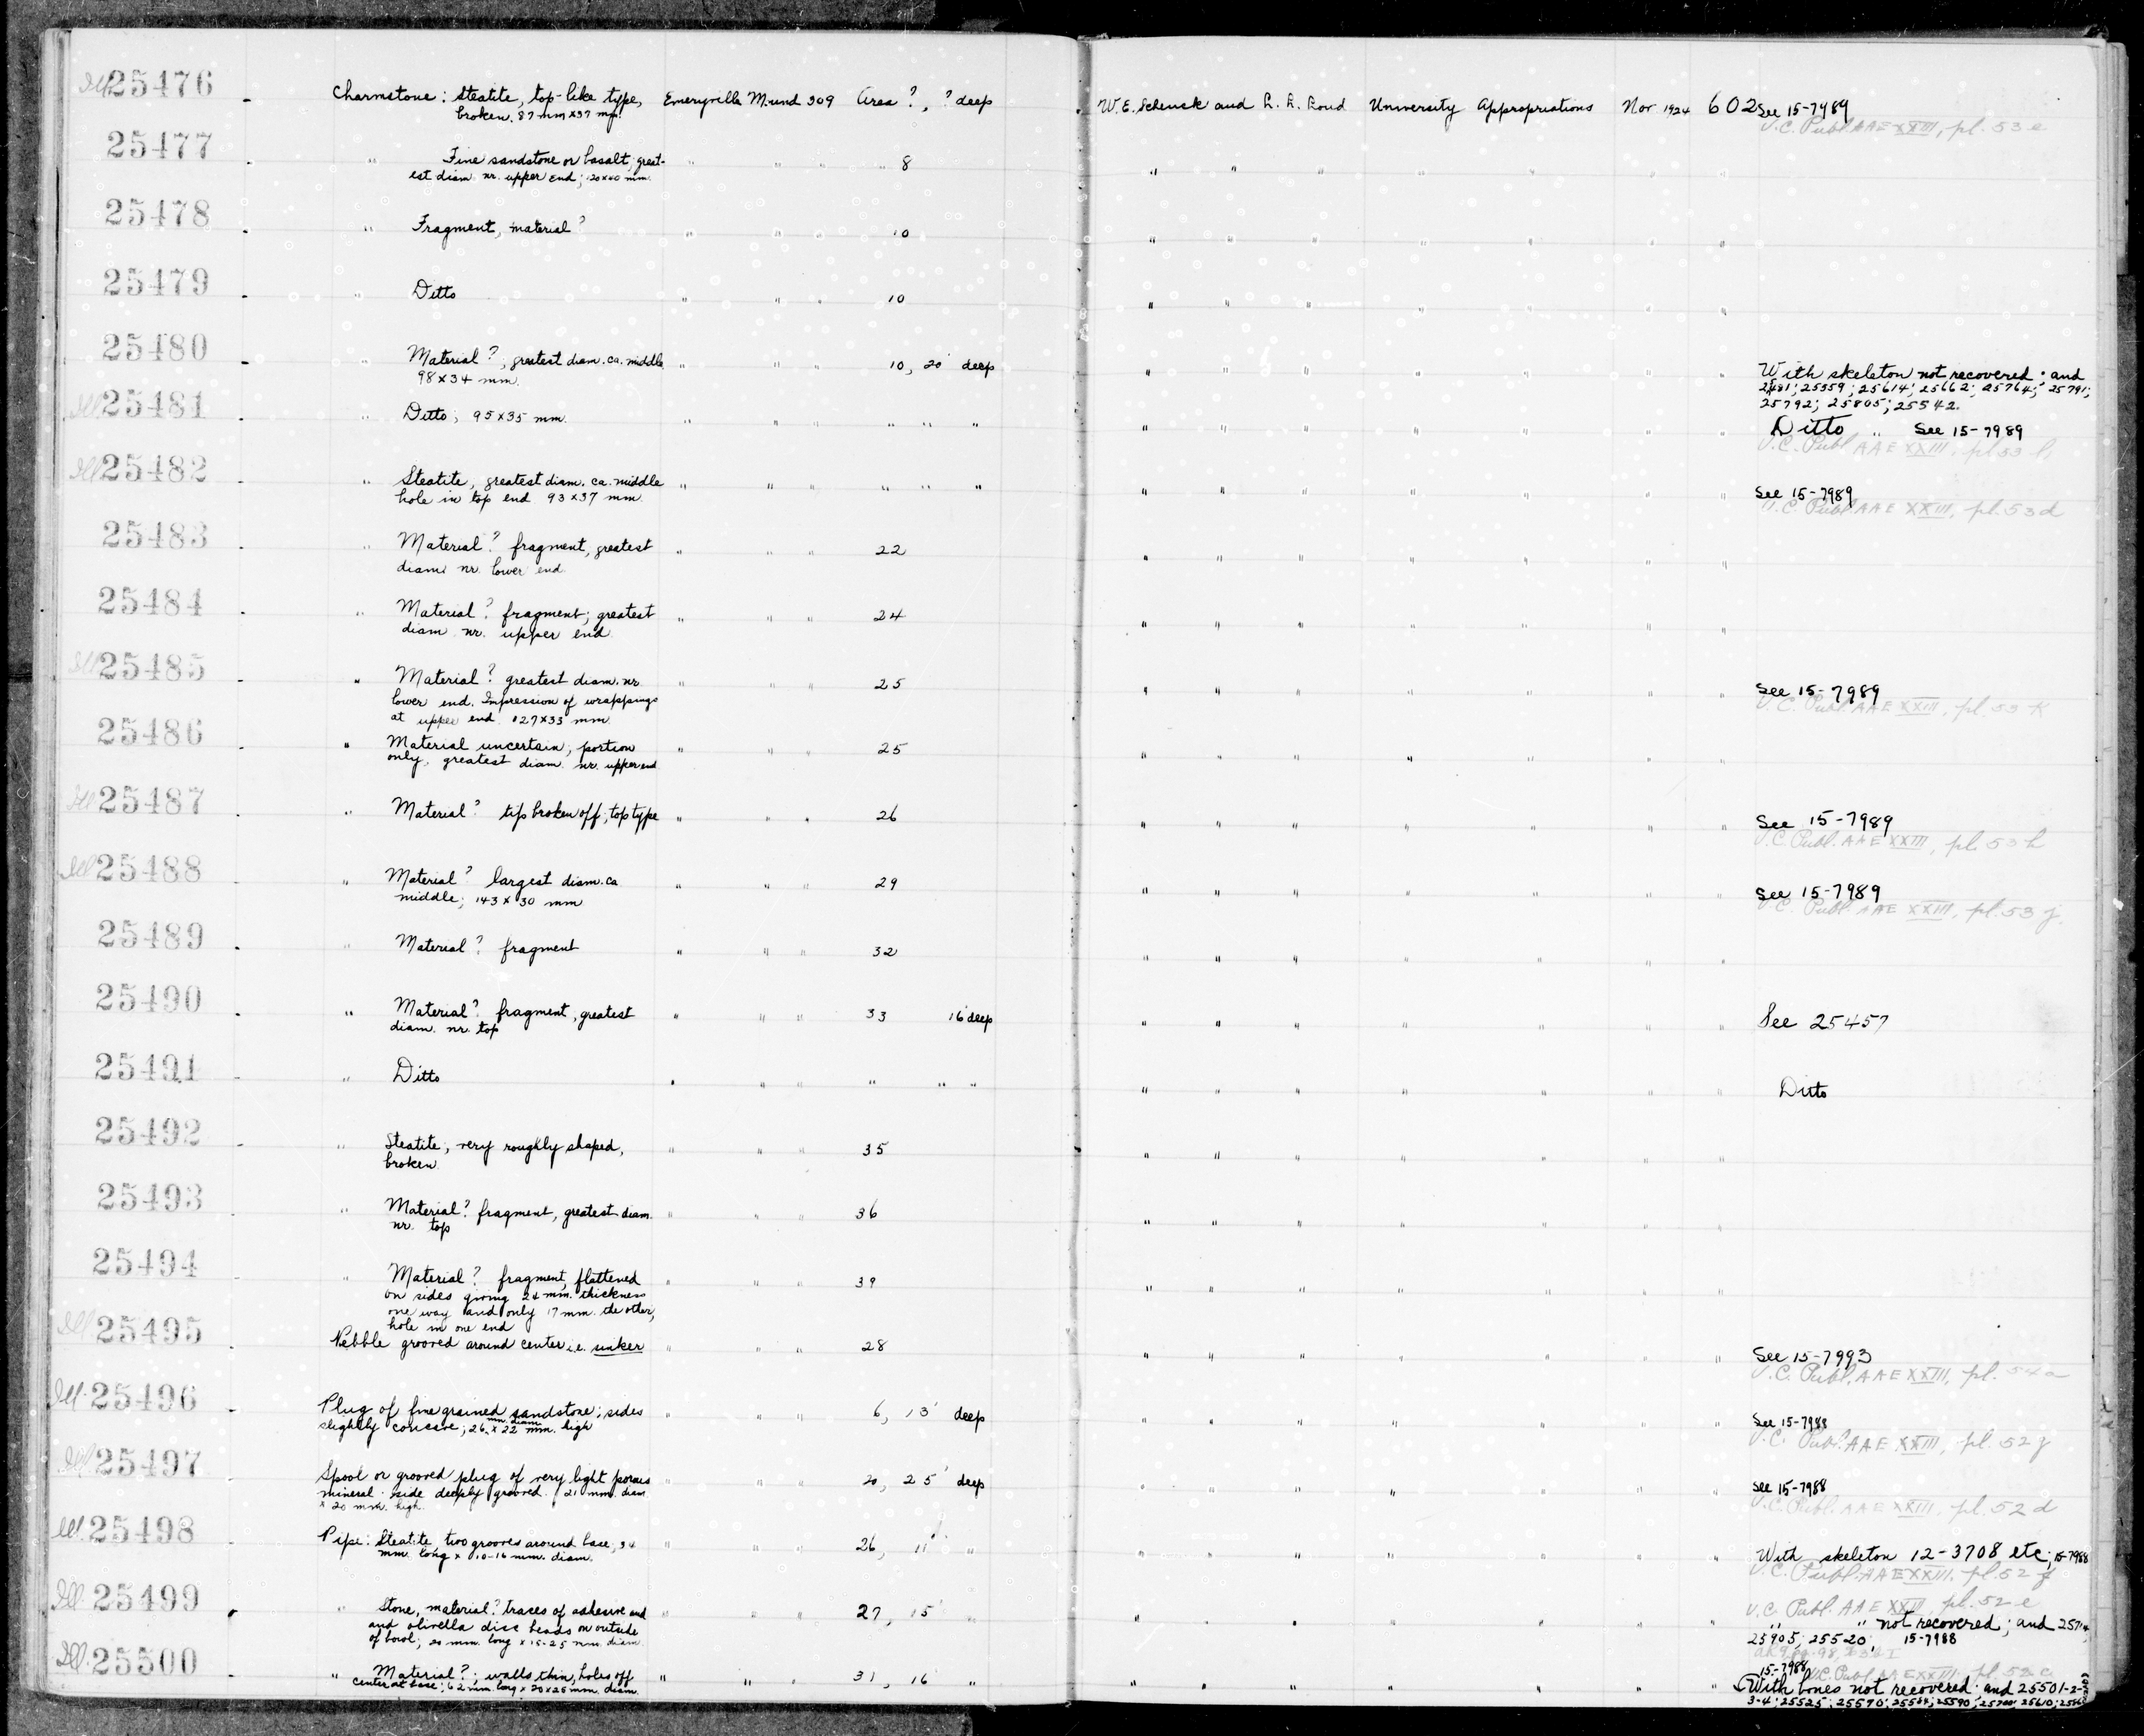 Ill 25476 - Charmstone: Steatite, top-like type, Emeryville Mound 309 Area ?, ? deep W.E. Schenck and L. L. Loud University Appropriations Nov 1924 602 See 15-7989
broken. 87 mm x 37 mm. U.C. Publ. AAE XXIII, pl. 53 e
25477 - " Fine sandstone or basalt; great- " " " " 8 " " " " " " "
est diam. nr. upper end; 120x40 mm.
25478 - " Fragment, material? " " " 10 " " " " " " "
25479 - " Ditto " " " 10 " " " " " " "
25480 - " Material?; greatest diam. ca. middle " " " 10, 20' deep " " " " " " " With skeleton not recovered; and
98 x 34 mm. 25481; 25559; 25614; 25662; 25764; 25791;
25792; 25805; 25542.
Ill 25481 - " Ditto; 95x35 mm. " " " " " " " " " " " " " Ditto " See 15-7989
U.C. Publ. AAE XXIII, pl 53 l
Ill 25482 - " Steatite, greatest diam. ca. middle " " " " " " " " " " " " " See 15-7989
hole in top end 93x37 mm. U.C. Publ AAE XXIII, pl. 53 d
25483 - " Material? fragment, greatest " " " 22 " " " " " " "
diam. nr. lower end.
25484 - " Material? fragment; greatest " " " 24 " " " " " " "
diam. nr. upper end.
Ill 25485 - " Material? greatest diam. nr. " " " 25 " " " " " " " See 15-7989
lower end. Impression of wrappings U.C. Publ. AAE XXIII, pl. 53 k
at upper end. 127x33 mm.
25486 - " Material uncertain; portion " " " 25 " " " " " " "
only, greatest diam. nr. upper end
Ill 25487 - " Material? tip broken off, top type " " " 26 " " " " " " " See 15-7989
U.C. Publ. AAE XXIII, pl. 53 h
Ill 25488 - " Material? largest diam. ca " " " 29 " " " " " " " See 15-7989
middle; 143 x 30 mm U.C. Publ. AAE XXIII, pl. 53 j.
25489 - " Material? fragment " " " 32 " " " " " " "
25490 - " Material? fragment, greatest " " " 33 16' deep " " " " " " " See 25457
diam. nr. top
25491 - " Ditto " " " " " " " " " " " " " Ditto
25492 - " Steatite, very roughly shaped, " " " 35 " " " " " " "
broken.
25493 " Material? fragment, greatest diam. " " " 36 " " " " " " "
nr. top
25494 - " Material? fragment, flattened " " " 39 " " " " " " "
on sides giving 24 mm. thickness
one way and only 17 mm. the other,
hole in one end
Ill 25495 Pebble grooved around center i.e. sinker " " " 28 " " " " " " " See 15-7993
U.C. Publ. AAE XXIII, pl. 54 a
Ill. 25496 - Plug of fine grained sandstone; sides " " " 6, 13' deep " " " " " " " See 15-7988
slightly concave; 26 mm. diam. x 22 mm. high U.C. Publ. AAE XXIII, pl. 52 g
Ill 25497 - Spool or grooved plug of very light porous " " " 20, 25' deep " " " " " " " See 15-7988
mineral. side deeply grooved. 21 mm. diam. U.C. Publ. AAE XXIII, pl. 52 d
x 20 mm. high.
Ill. 25498 - Pipe: Steatite, two grooves around base, 34 " " " 26, 11' " " " " " " " " With skeleton 12-3708 etc; 15-7988
mm. long x 10-16 mm. diam. U.C. Publ. AAE XXIII, pl. 52 f
Ill. 25499 - " Stone, material? traces of adhesive and " " " 27, 15' " " " " " " " " U.C. Publ AAE XXIII, pl. 52 e
and olivella disc beads on outside " " not recovered; and
of bowl; 20 mm. long x 15-25 mm. diam. 25905; 25520; 15-7988
Ill. 25500 - " Material?; walls thin, holes off " " " 31, 16 " " " " " " " " 15-7988 U.C. Publ AAE XXIII, pl. 52 c
center at base; 62 mm. long x 20x25 mm. diam. With bones not recovered; and 25501-2-
3-4; 25525; 25570;